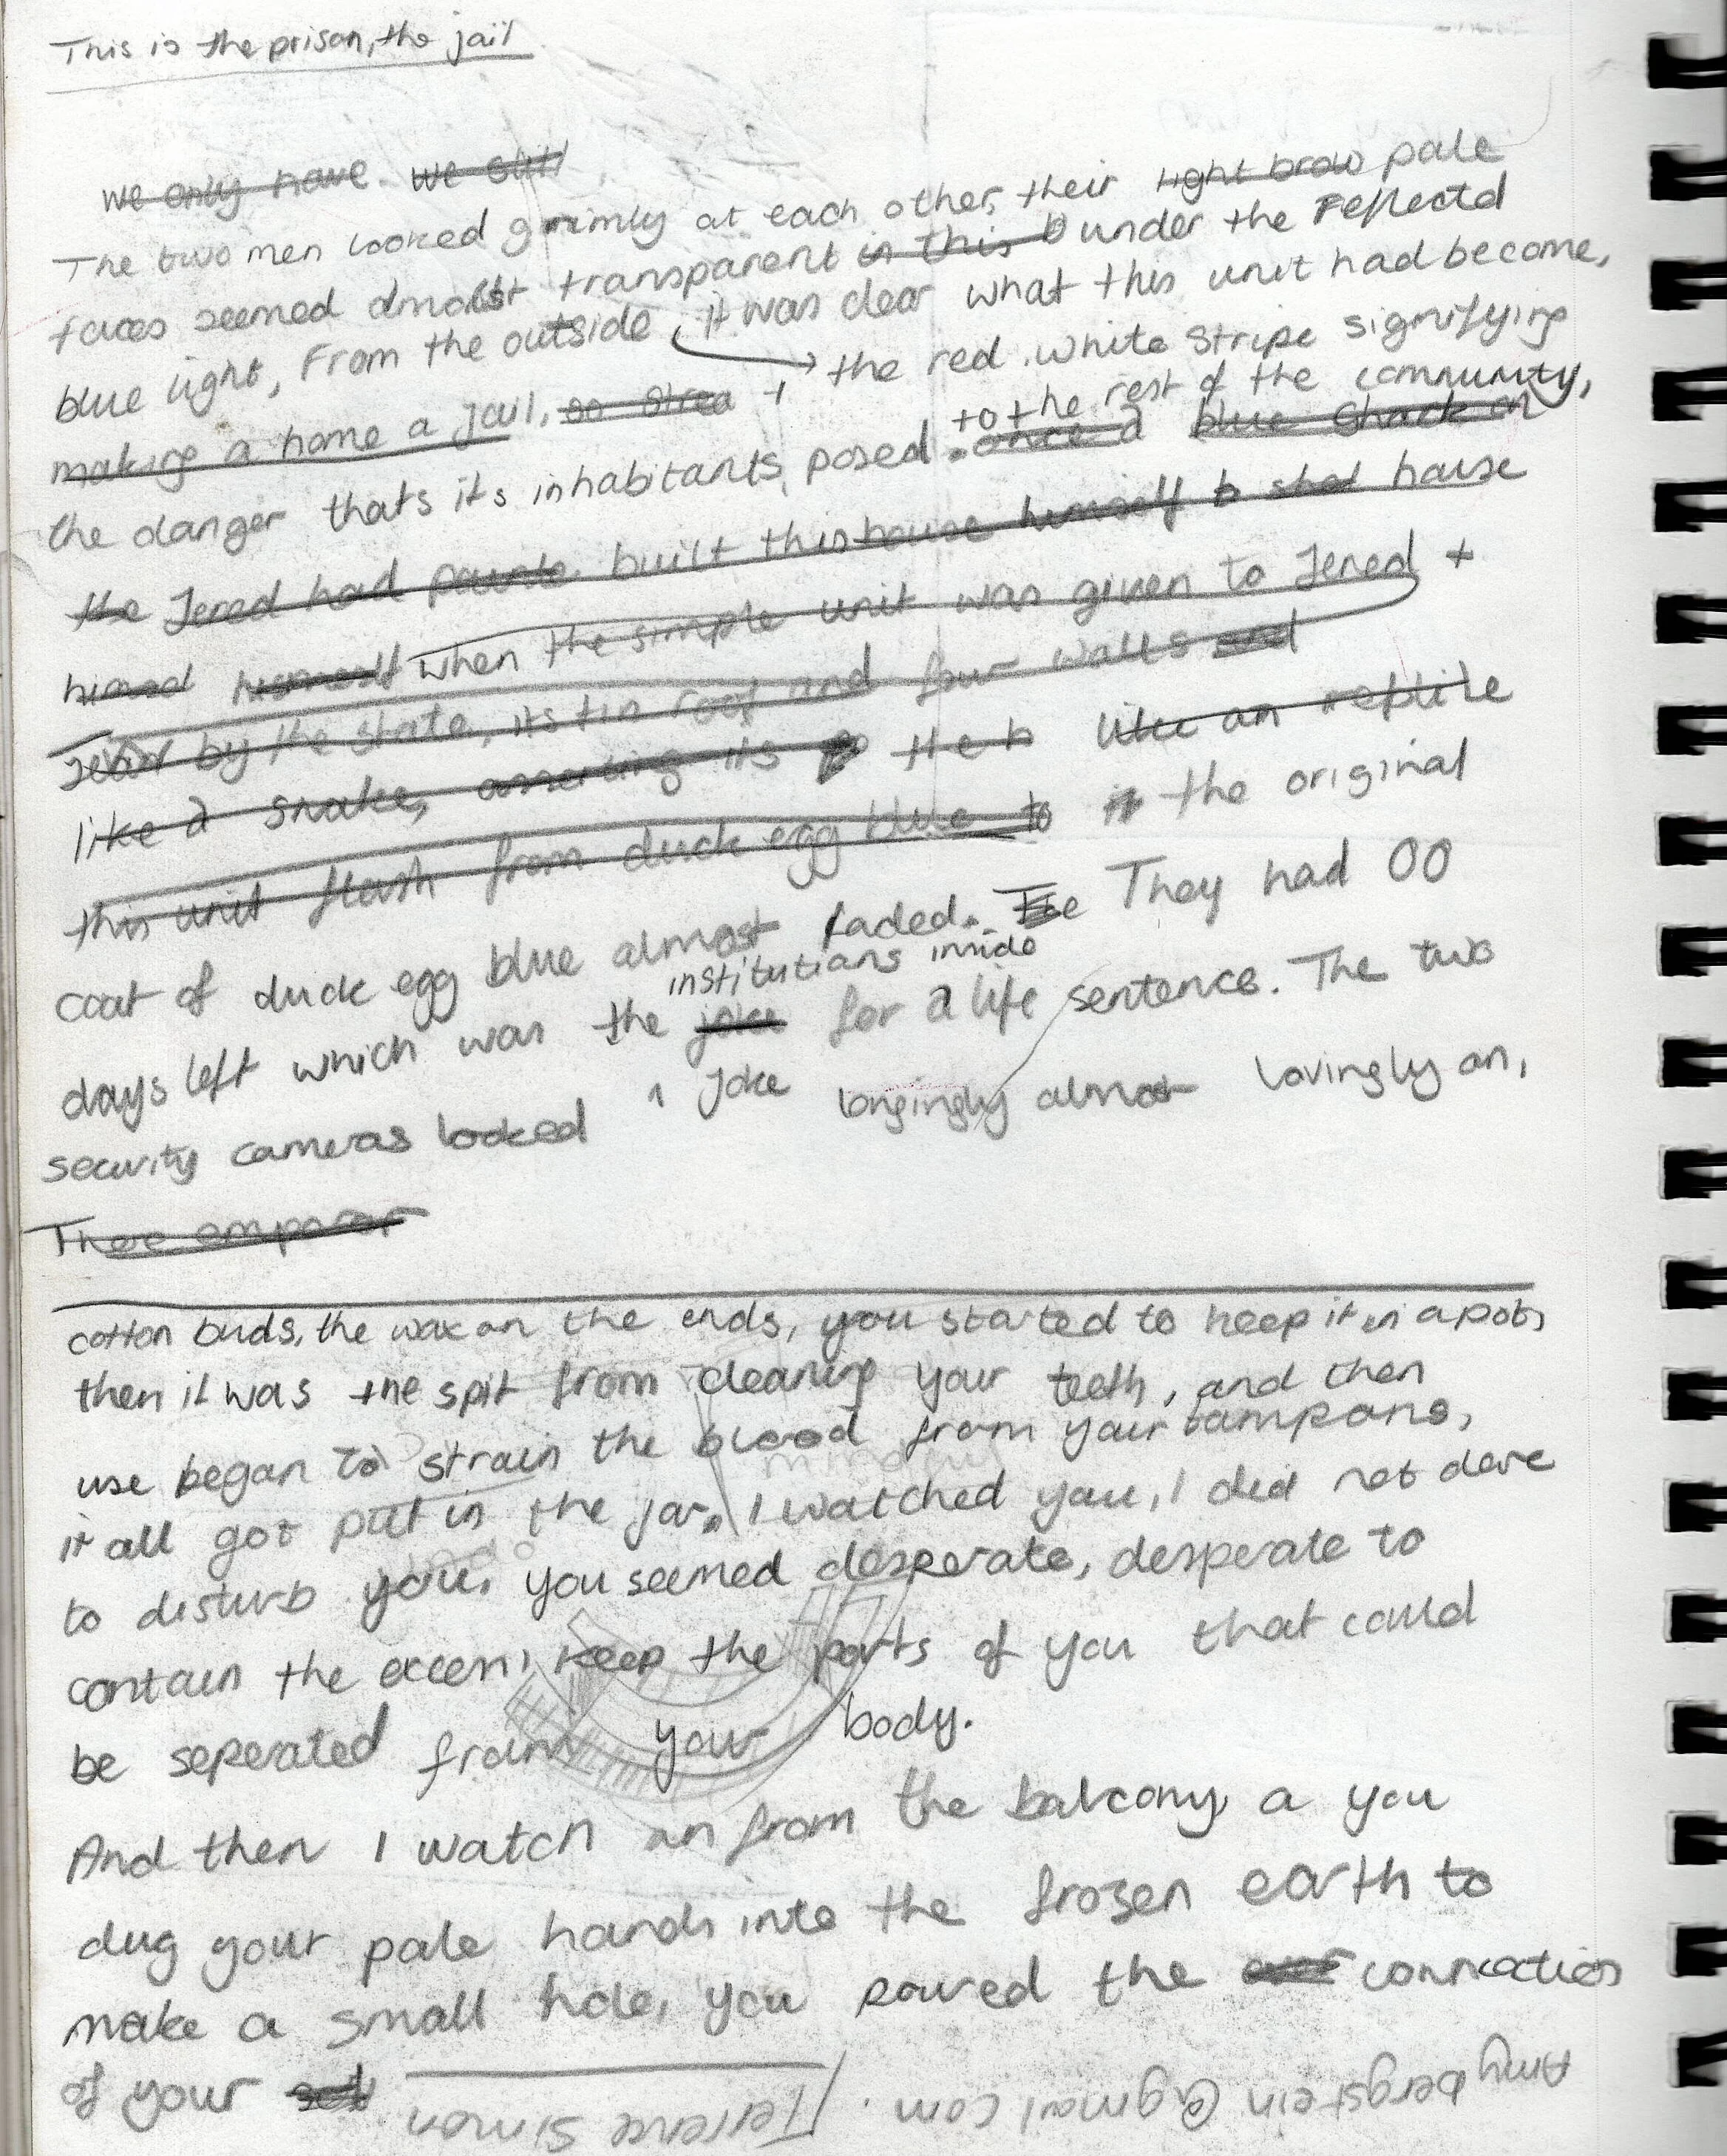 This is the prison, the jail
we only have. we still
The two men looked grimly at each other, their light brow pale
faces seemed almost transparent in this b under the reflectd
blue light, From the outside, it was clear what this unit had become,
making a home a jail, so strea + the red. white stripe signifying
to the rest of the community,
the danger thats its inhabitants, posed. once a blue shack on
the Jered had built this house himself to shed house
himself when the simple unit was given to Jered +
by the state, its tin roof and four walls and
like a snake, asserting its so the h like an reptile
this unit flash from duck egg blue to the original
coat of duck egg blue almost faded. The They had 00
institutions inside
days left which was the joke for a life sentence. The two
security cameras looked 1 Joke longingly almost lovingly on,
Thee emperor
cotton buds, the wax on the ends, you started to keep it in a pot,
then it was the spit from cleaning your teeth, and then
use began to strain the blood from your tampons,
it all got put in the jar. I watched you, I did not dare
to disturb you. you seemed desperate, desperate to
contain the excess, keep the parts of you that could
be seperated from your body.
And then I watch on from the balcony a you
dug your pale hands into the frozen earth to
make a small hole, you poured the over connection
of your
Amybergstein@gmail.com.
Terrence simon